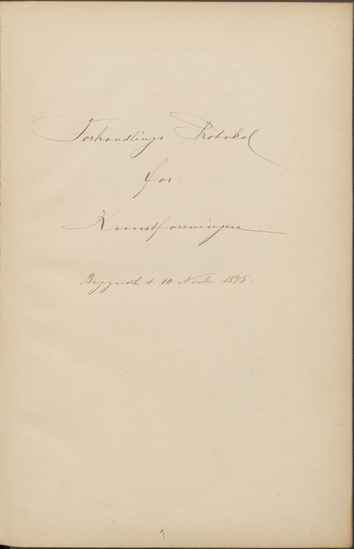 Forhandlings Protokol
for
Kunstforeningen
Begyndt d 10 Novbr 1895.
1